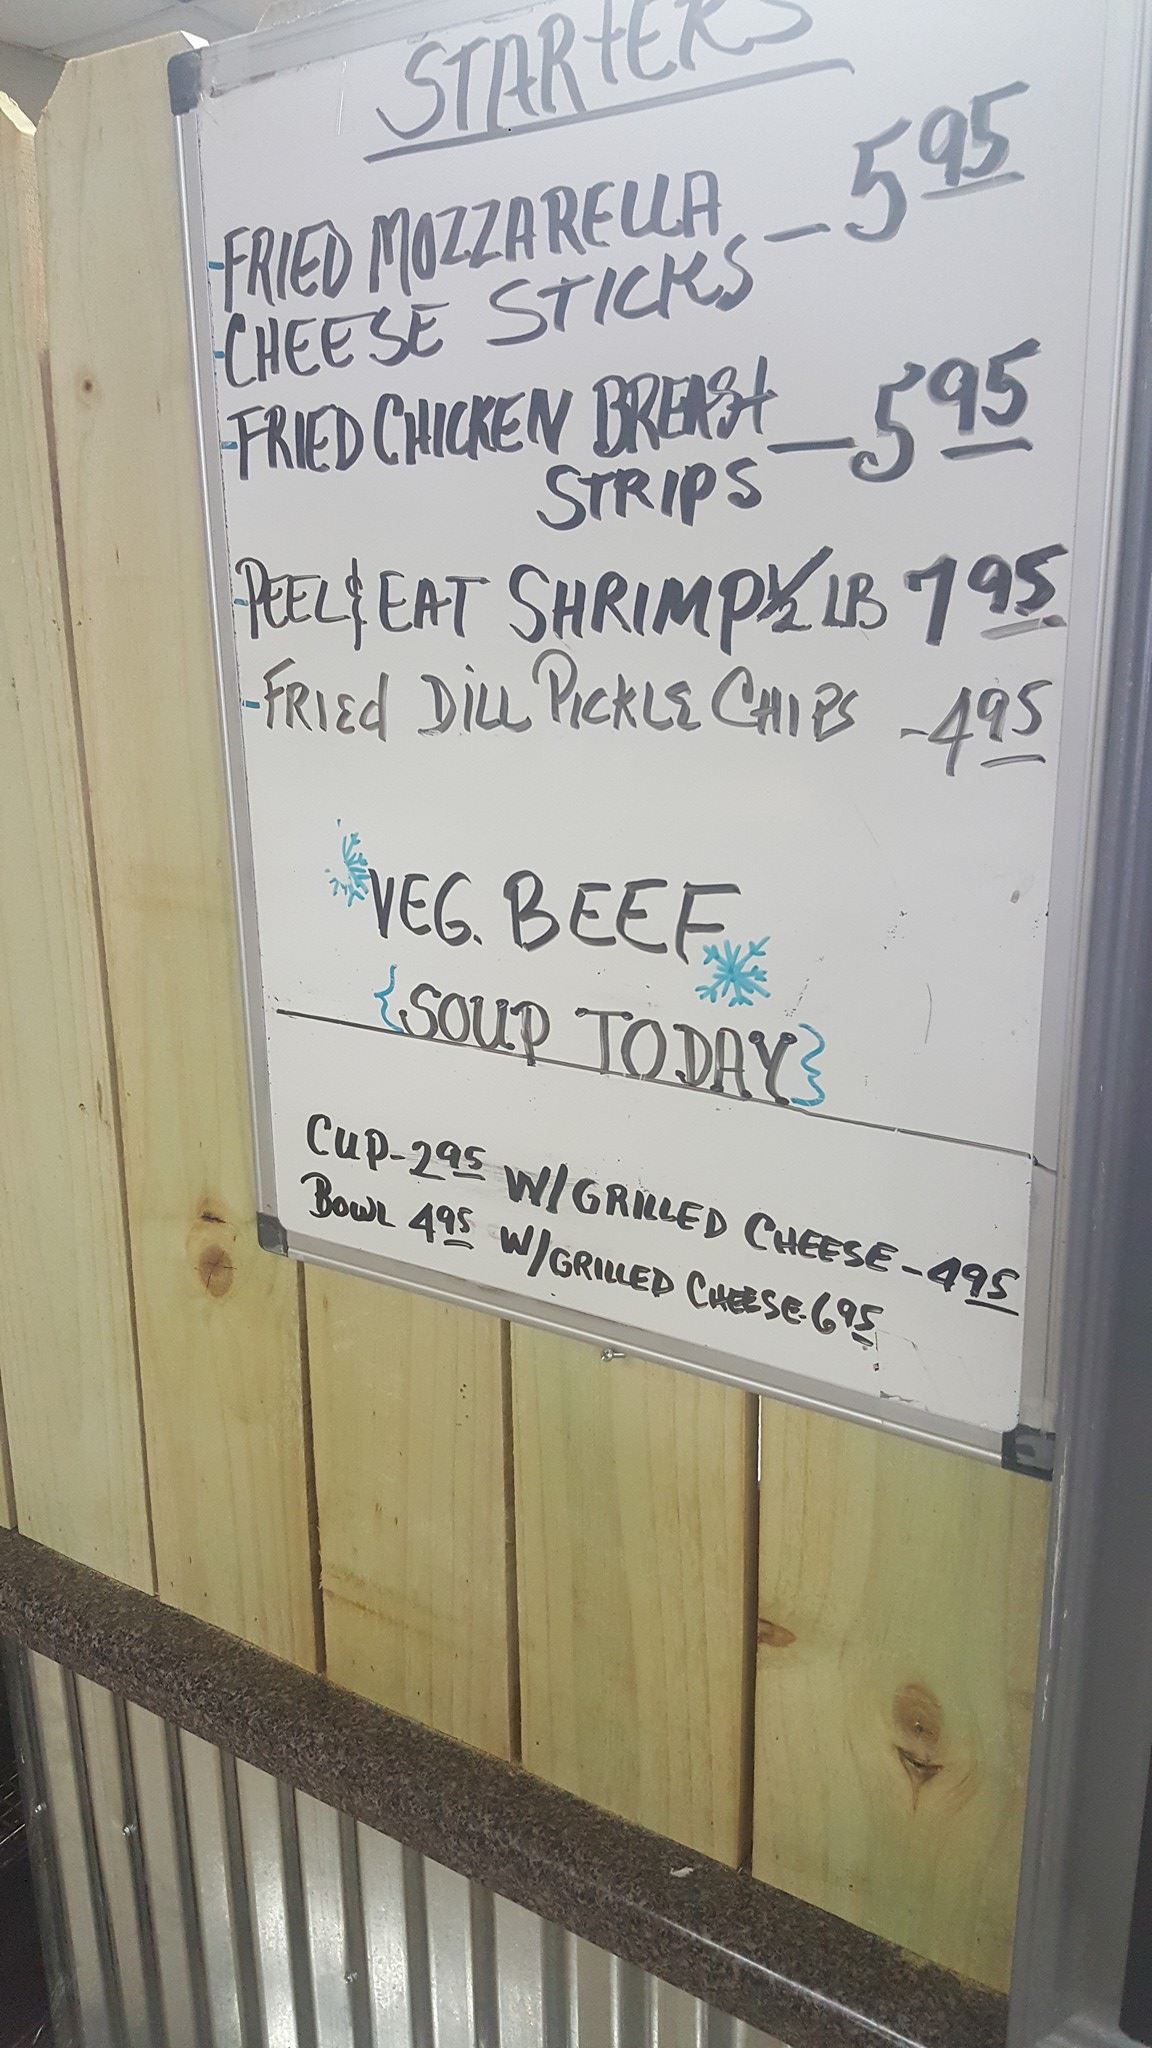 STARTERS
- FRIED MOZZARELLA — 5 95
- CHEESE STICKS
- FRIED CHICKEN BREAST — 5 95
STRIPS
- PEEL & EAT SHRIMP 1/2 LB 7 95
- FRIEd DiLL PICKLE CHIPS - 4 95
VEG. BEEF
{SOUP TODAY}
CUP - 2 95 W/GRILLED CHEESE - 4 95
BOWL 4 95 W/GRILLED CHEESE - 6 95